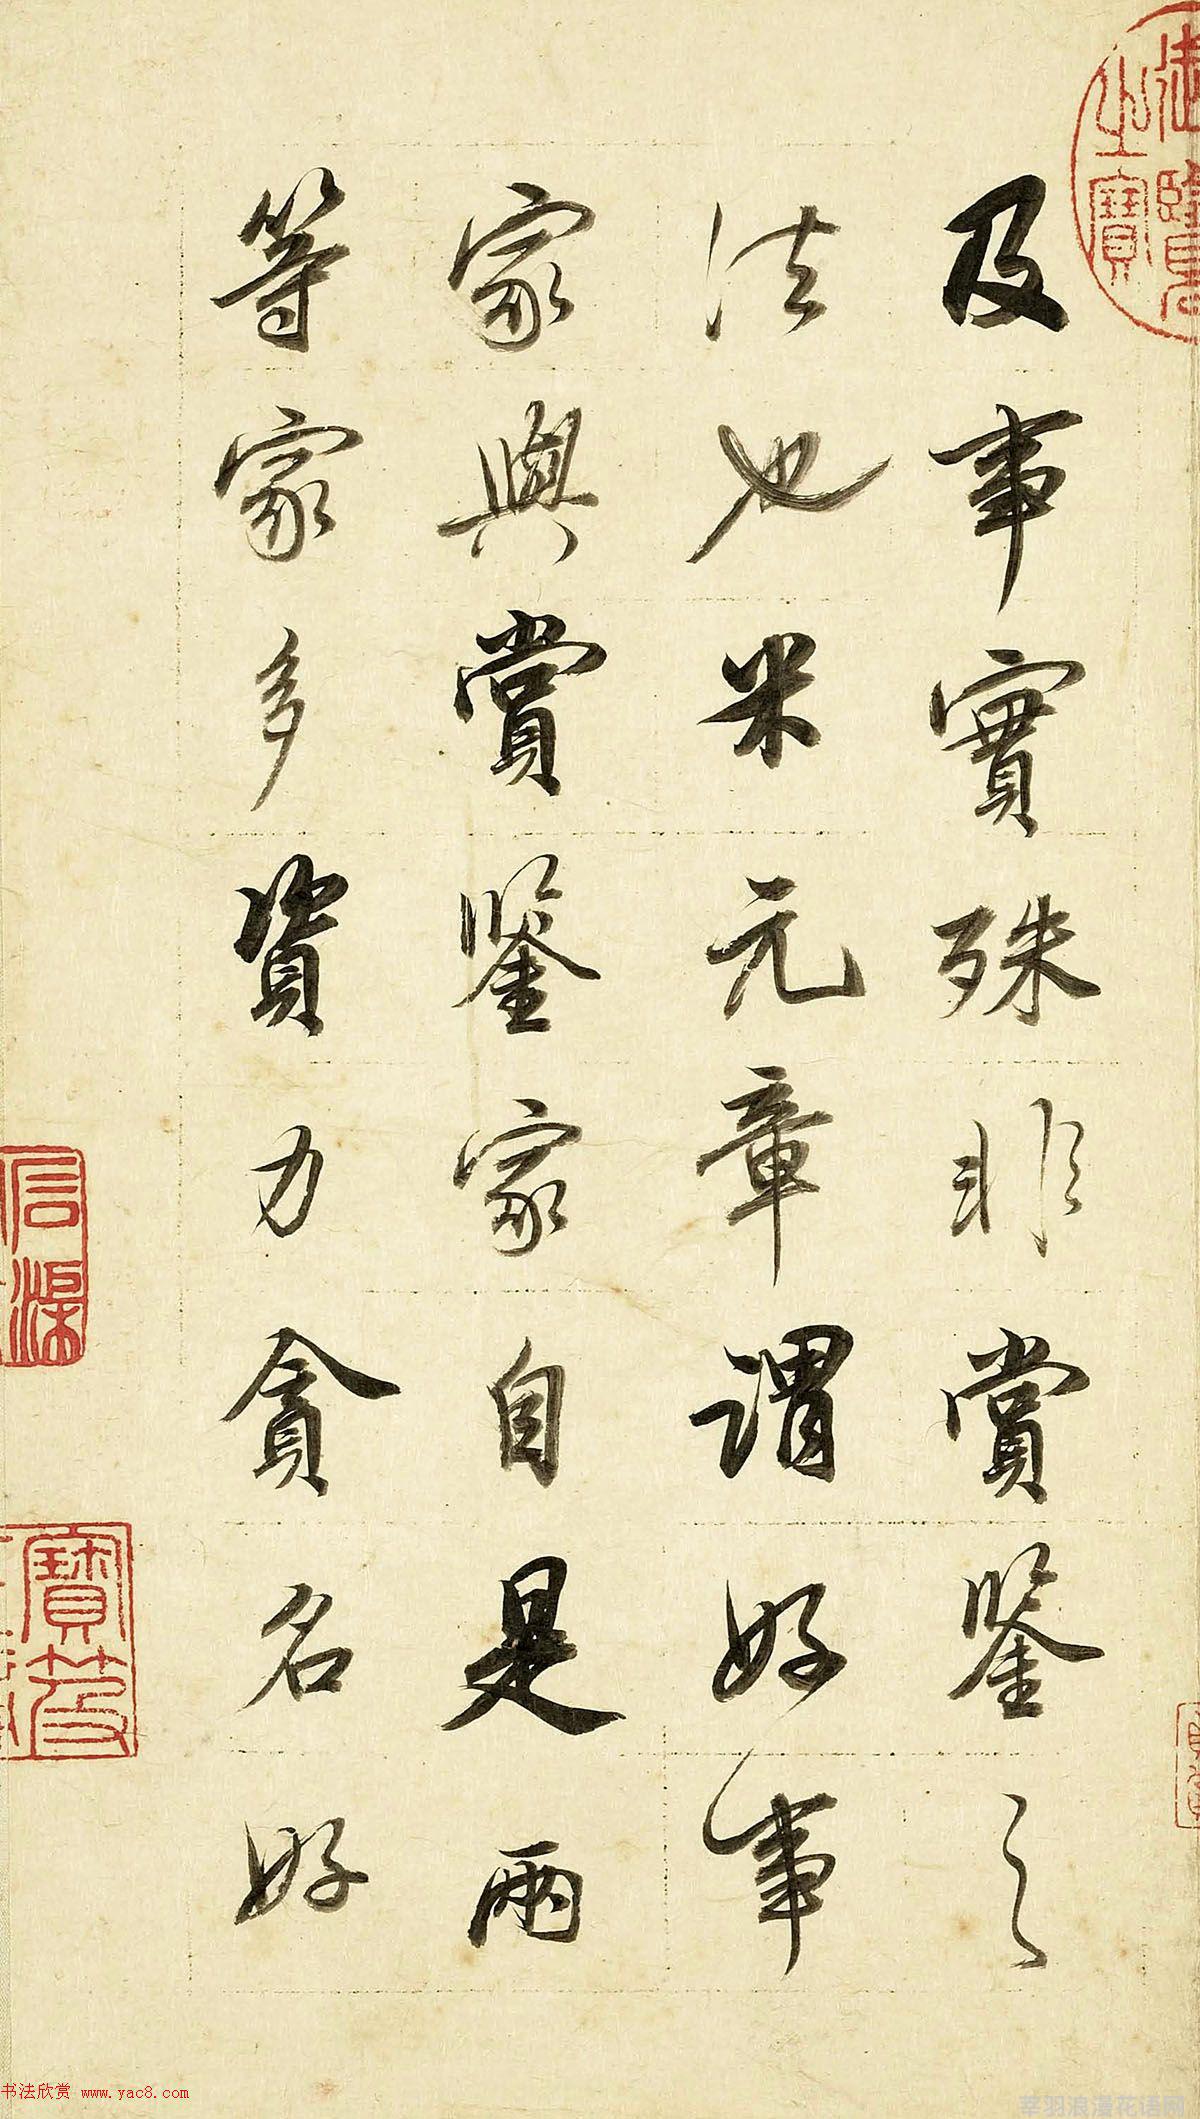 及事實殊非賞鑒之
法也米元章謂好事
家與賞鑒家自是兩
等家多資力貪名好
書法欣赏 www.yac8.com
莘羽浪漫花语网